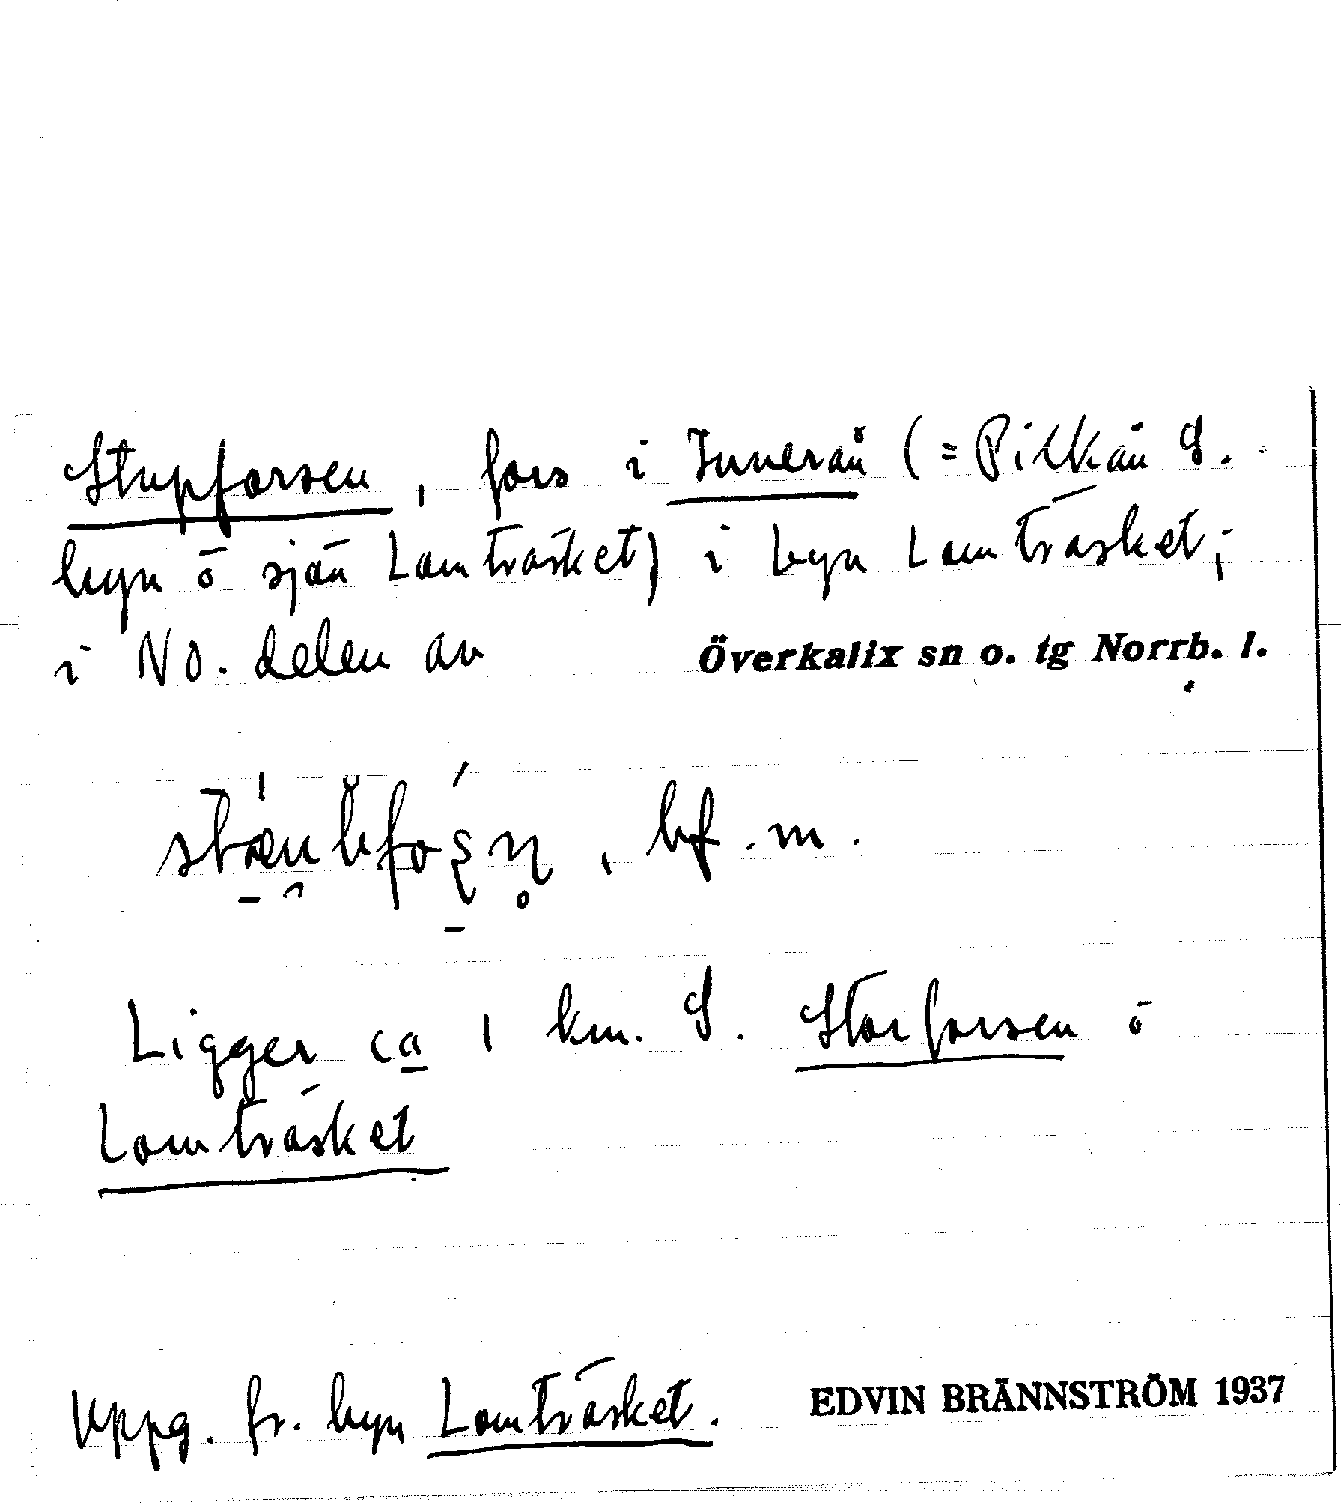 Stupforsen, fors i Innerån (= Pitkån S.
byn o sjön Lomträsket) i byn Lomträsket;
i NO. delen av Överkalix sn o. tg Norrb. l.
bf. m.
Ligger ca 1 km. S. Storforsen o
Lomträsket
Uppg. fr. byn Lomträsket. EDVIN BRÄNNSTRÖM 1937